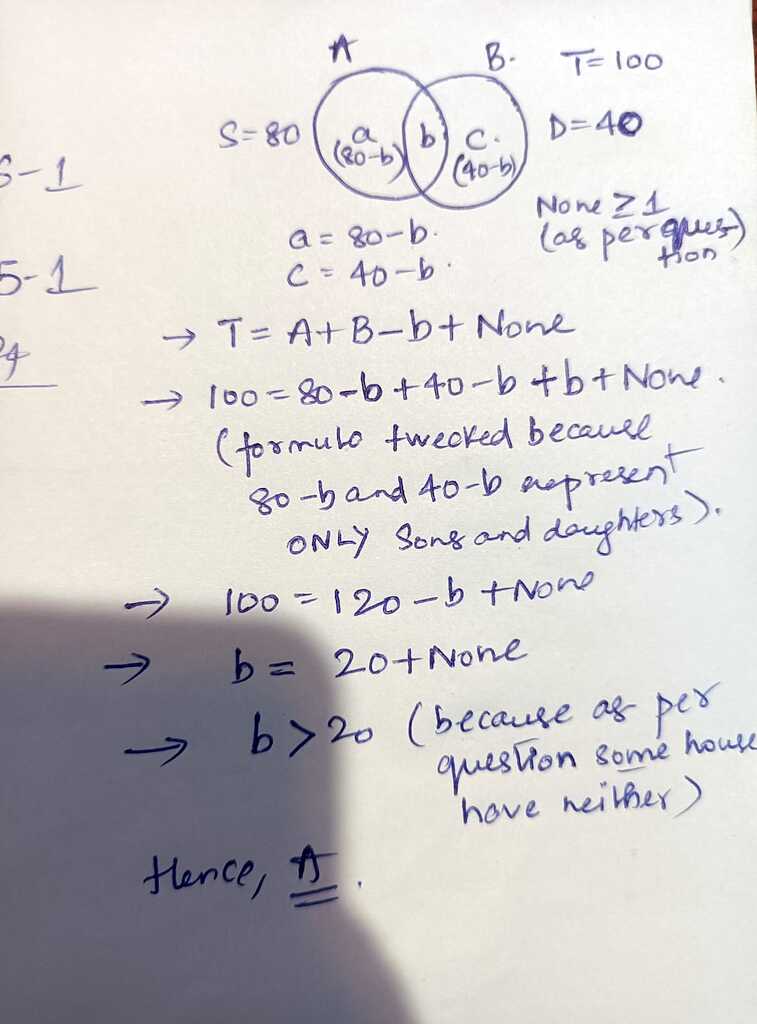 A
B.
T= 100
S=80
a
(80-b)
b
C.
(40-b)
D=40
5-1
None ≥ 1
(as per ques
tion)
a = 80-b.
C = 40-b.
→ T= A+B-b+ None
→ 100 = 80-b+40-b+b+None.
(formulo twecked because
80-b and 40-b represent
ONLY Sons and daughters).
→ 100 = 120-b +None
→ b= 20+None
→ b>20 (because as per
question some house
have neither)
Hence, A.